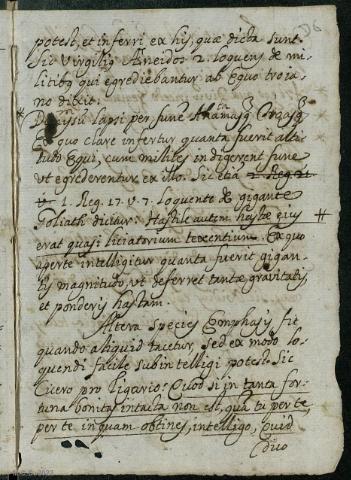 potest, et inferri ex his, quæ dicta sunt.
Sic Virgilius Æneidos 2. loquens de mi-
litibus qui egrediebantur ab Equo troia-
no dixit.
lapsi per funē Athamasq; Thoasq;
Ex quo clare infertur quanta fuerit alti-
tudo Equi, cum milites indigerent fune
ut egrederentur ex illo. Sic etiā 2. Reg. 21.
1. Reg. 17. v. 7. loquente de gigante
Goliath dicitur: Hastile autem hastæ eius #
erat quasi liciatorium texentium. Ex quo
aperte intelligitur quanta fuerit gigan-
tis magnitudo, ut deferret tantæ gravitatis
et ponderis hastam.
Altera species Emphasis fit
quando aliquid tacetur, sed ex modo lo-
quendi facile subintelligi potest. Sic
Cicero pro Ligario: Quod si in tanta for-
tuna bonitas intacta non est, quā tu per te,
per te inquam obtines, intelligo, Quid
duo